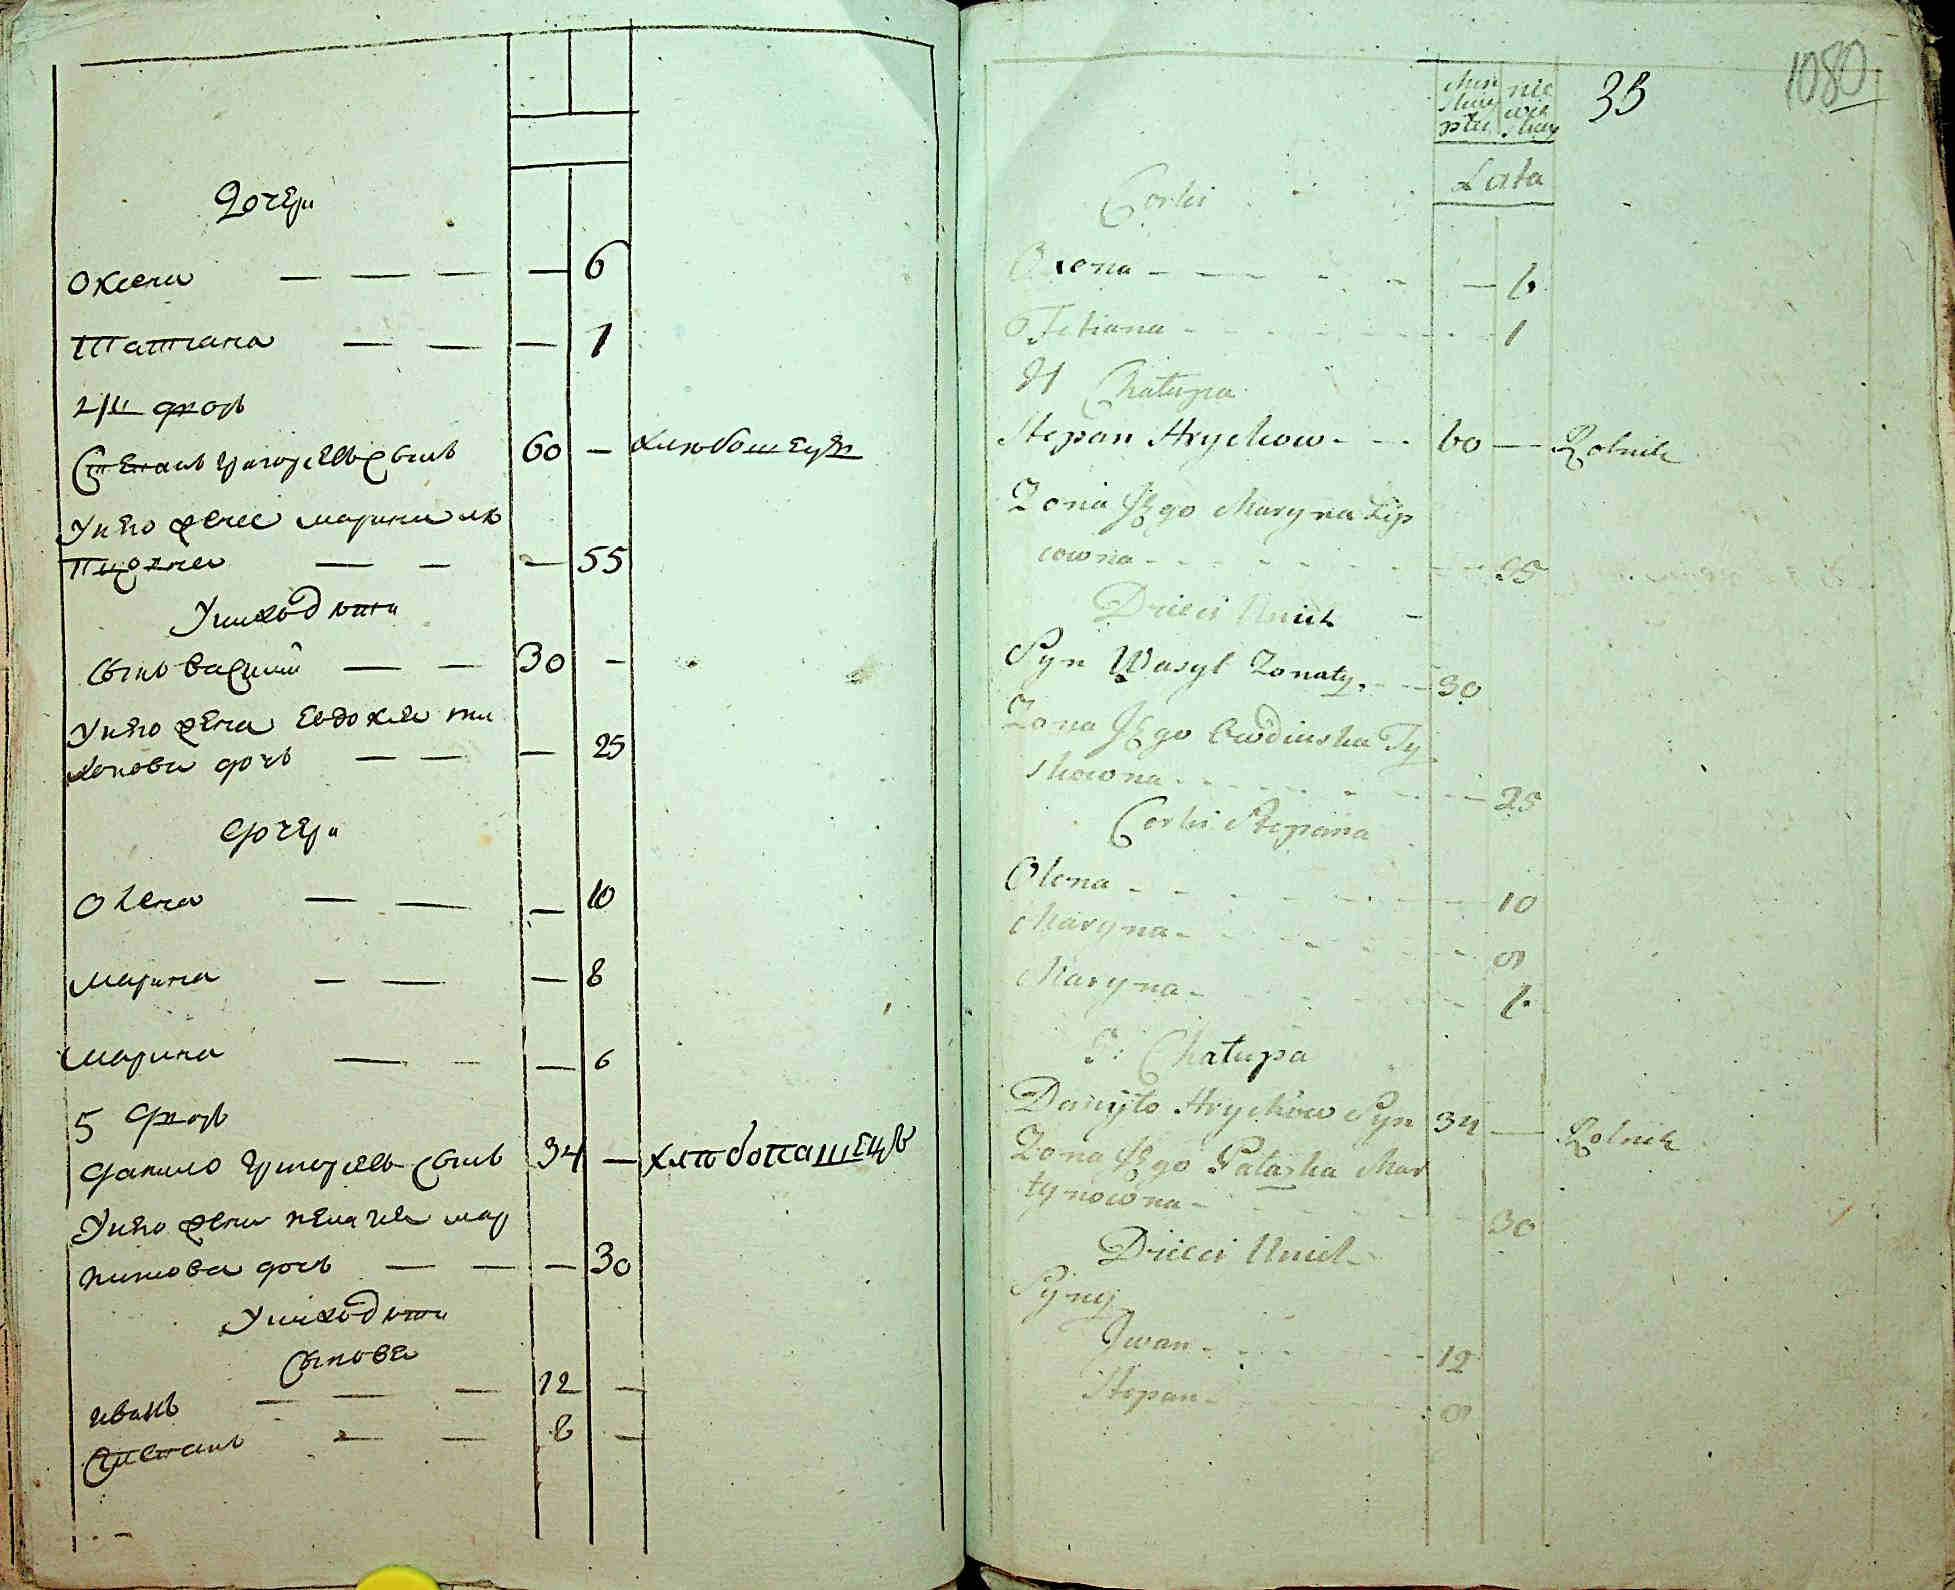 Дочери
Оксена — — — — 6
Татиана — — — 1
4й двор
Степанъ григорьевъ сынъ 60 — хлебопашецъ
У него жена марина
— — — 55
У них дѣти
Сынъ василий — — 30 —
У него жена Евдокия ти
хонова дочь — — — 25
Дочери
Олена — — — 10
Марина — — — 8
Марина — — — 6
5 двор
Данило григорьевъ сынъ 34 — хлѣбопашецъ
У него жена пелагея мар
тинова дочь — — — 30
У них дѣти
Сынове
иванъ — — — 12 —
Степанъ — — 8 —
1080
33
Lata
Corki
Oxena - - - - - — 6
Tetiana - - - - - 1
4 Chałupa
Stepan Hryckow - - - 60 — Rolnik
Zona Jego Maryna
cowna - - - - - 55
Dzieci Onich
Syn Wasyl Zonaty - - 30
Zona Jego Owdiuska Ty
chowna - - - - - 25
Corki Stepana
Olena - - - - - 10
Maryna - - - - - 8
Maryna - - - - - 6
5: Chałupa
Danyło Hryckow Syn 34 — Rolnik
Zona Jego Palazka Mar
tynowna - - - - - 30
Dzieci Onich
Syny
Jwan - - - - - 12
Stepan - - - - - 8